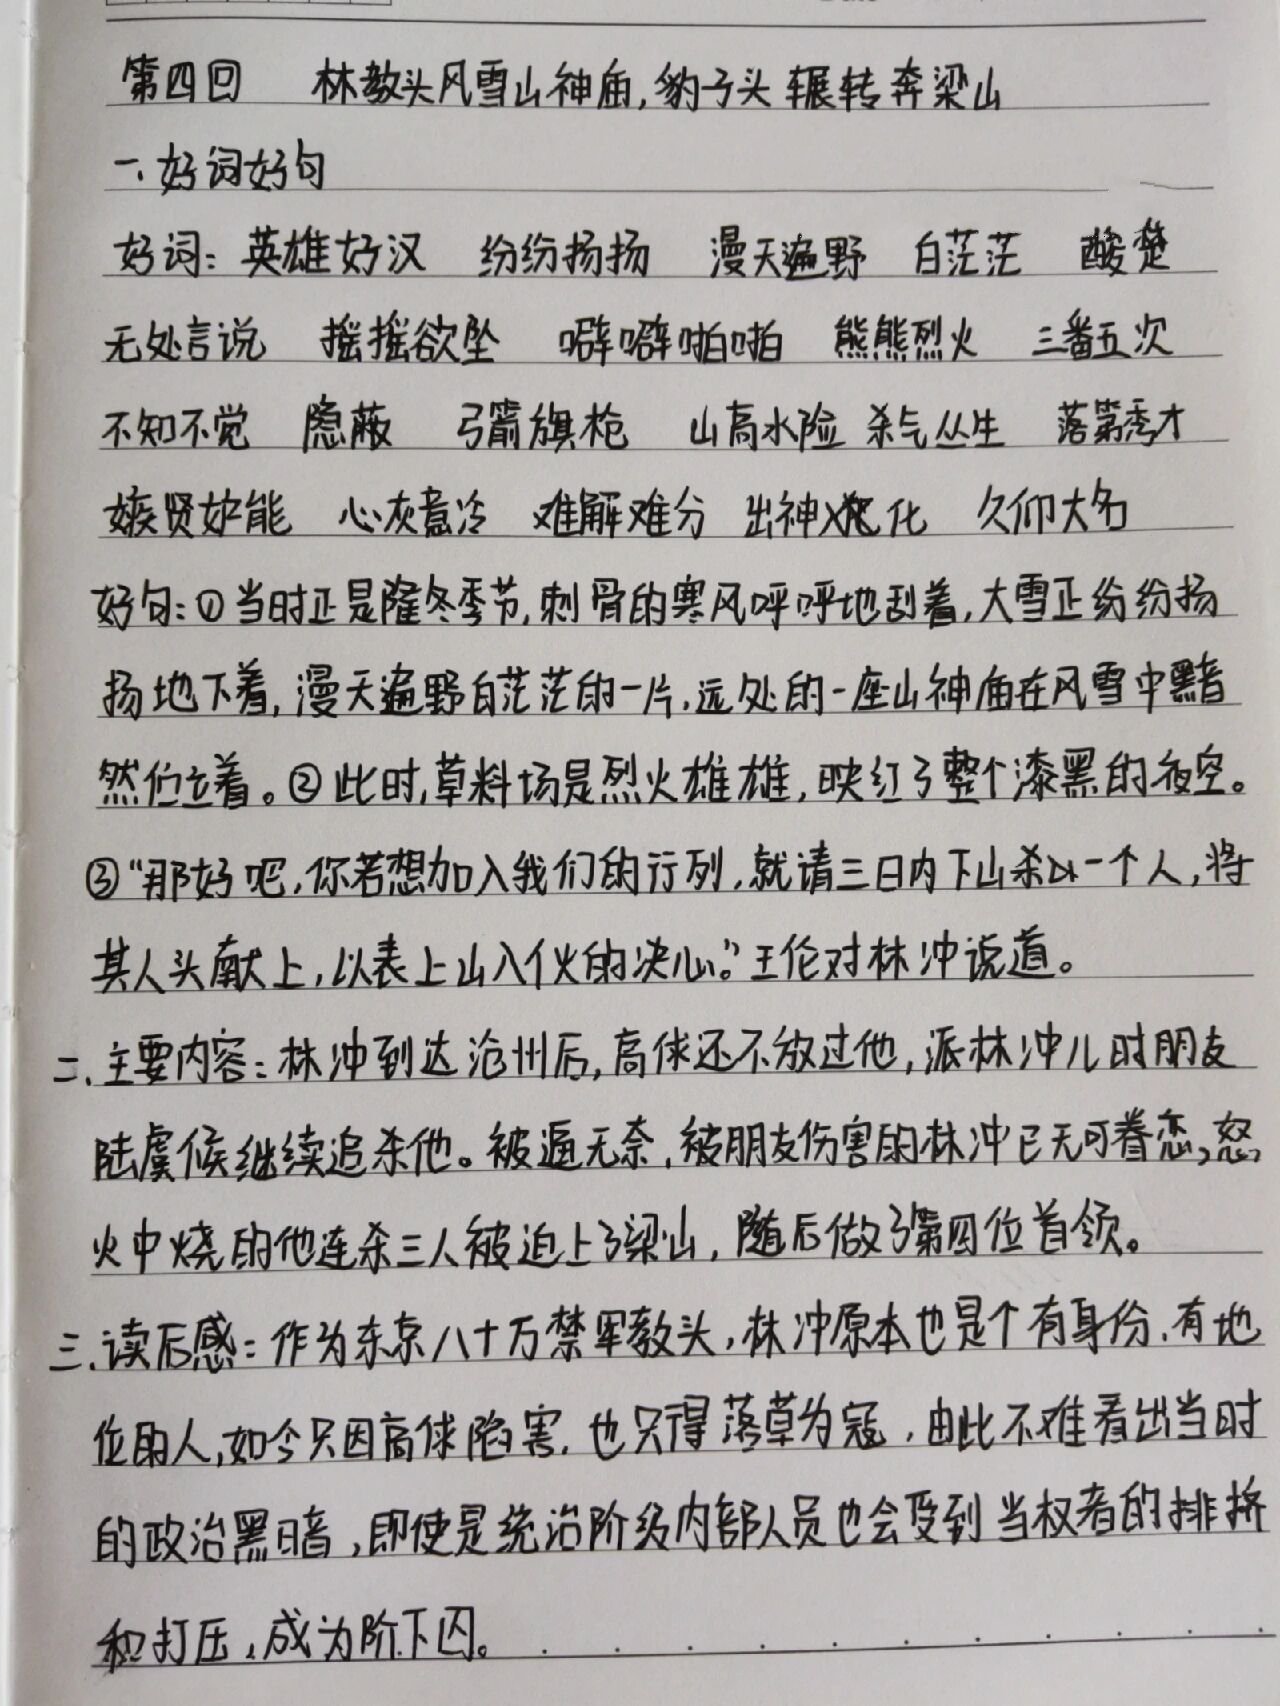 第四回 林教头风雪山神庙,豹子头辗转奔梁山
一、好词好句
好词：英雄好汉 纷纷扬扬 漫天遍野 白茫茫 酸楚
无处言说 摇摇欲坠 噼噼啪啪 熊熊烈火 三番五次
不知不觉 隐蔽 弓箭旗枪 山高水险 杀气丛生 落第秀才
嫉贤妒能 心灰意冷 难解难分 出神入化 久仰大名
好句：①当时正是隆冬季节,刺骨的寒风呼呼地刮着,大雪正纷纷扬
扬地下着,漫天遍野白茫茫的一片,远处的一座山神庙在风雪中黯
然伫立着。②此时,草料场是烈火雄雄,映红了整个漆黑的夜空。
③“那好吧,你若想加入我们的行列,就请三日内下山杀以一个人,将
其人头献上,以表上山入伙的决心。”王伦对林冲说道。
二、主要内容：林冲到达沧州后,高俅还不放过他,派林冲儿时朋友
陆虞候继续追杀他。被逼无奈,被朋友伤害的林冲已无可眷恋,怒
火中烧的他连杀三人被迫上了梁山,随后做了第四位首领。
三、读后感：作为东京八十万禁军教头,林冲原本也是个有身份、有地
位的人,如今只因高俅陷害,也只得落草为寇,由此不难看出当时
的政治黑暗,即使是统治阶级内部人员也会受到当权者的排挤
和打压,成为阶下囚。